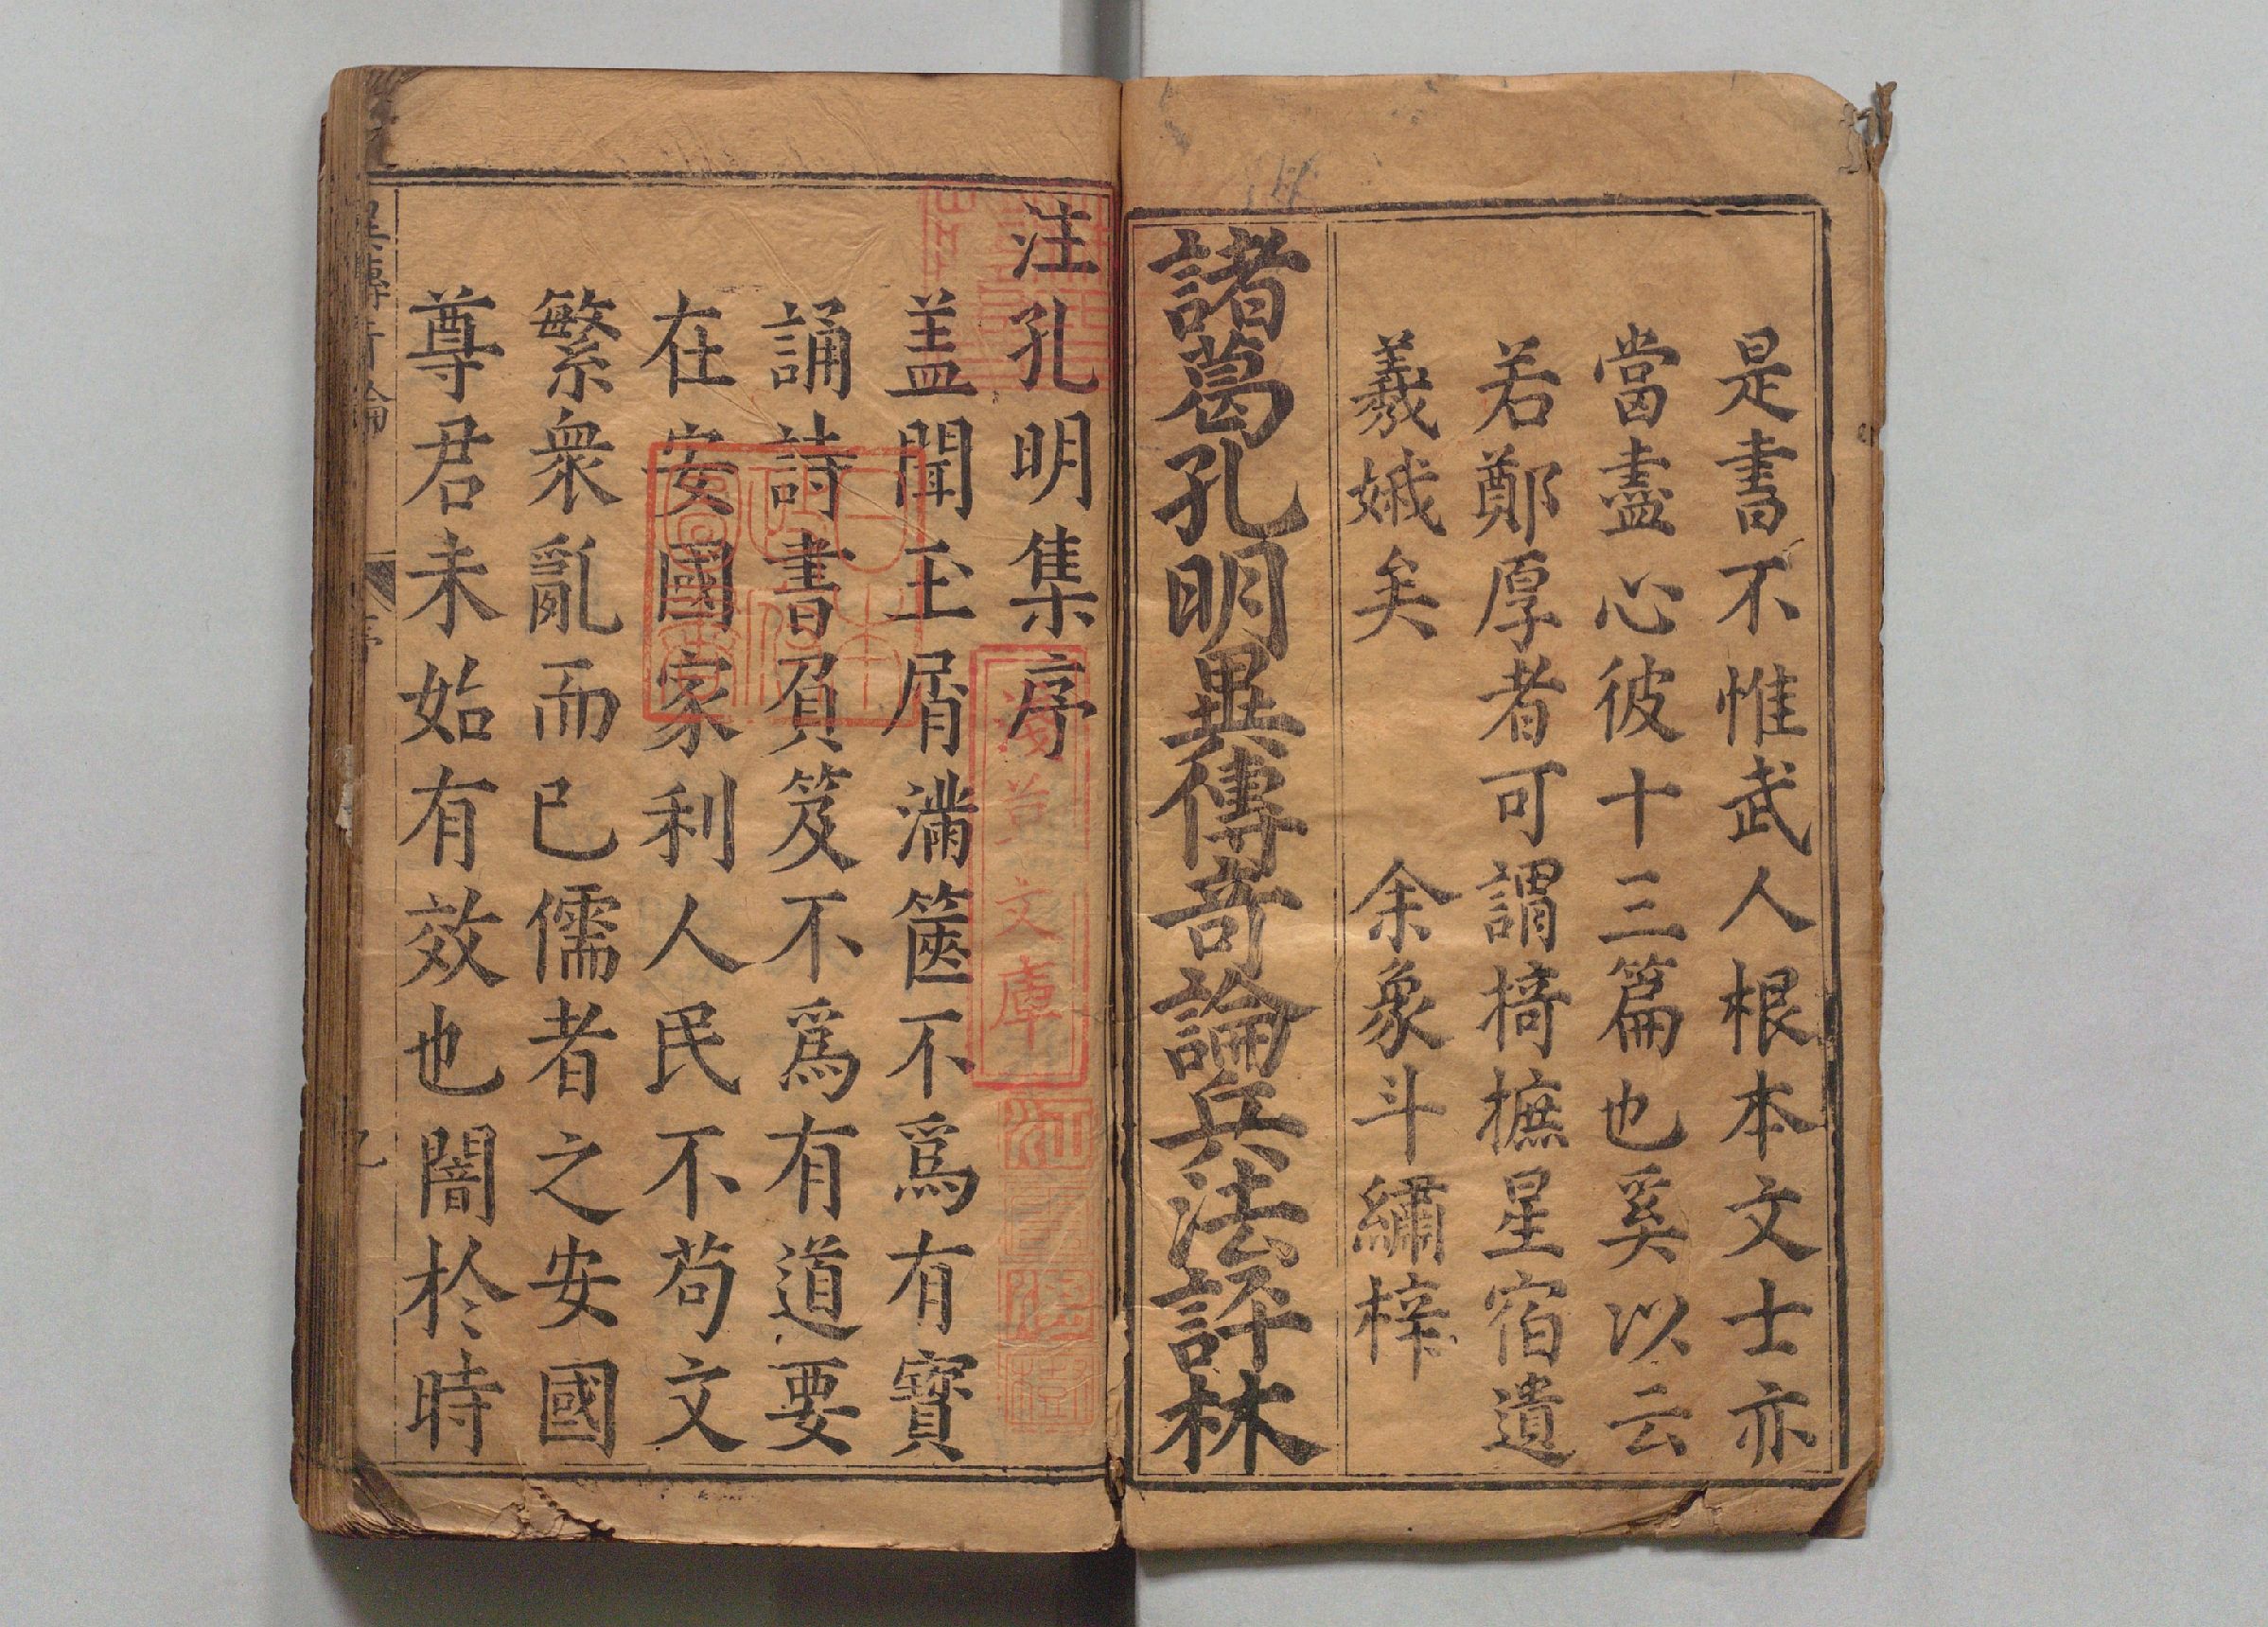 是書不惟武人根本文士亦
當盡心彼十三篇也奚以云
若鄭厚者可謂掎摭星宿遺
羲娥矣　余象斗繡梓
諸葛孔明異傳奇論兵法評林
注孔明集序
盖聞玉屑滿篋不爲有寶
誦詩書負笈不爲有道要
在安國家利人民不苟文
繁衆亂而已儒者之安國
尊君未始有效也闇於時
淺草文庫